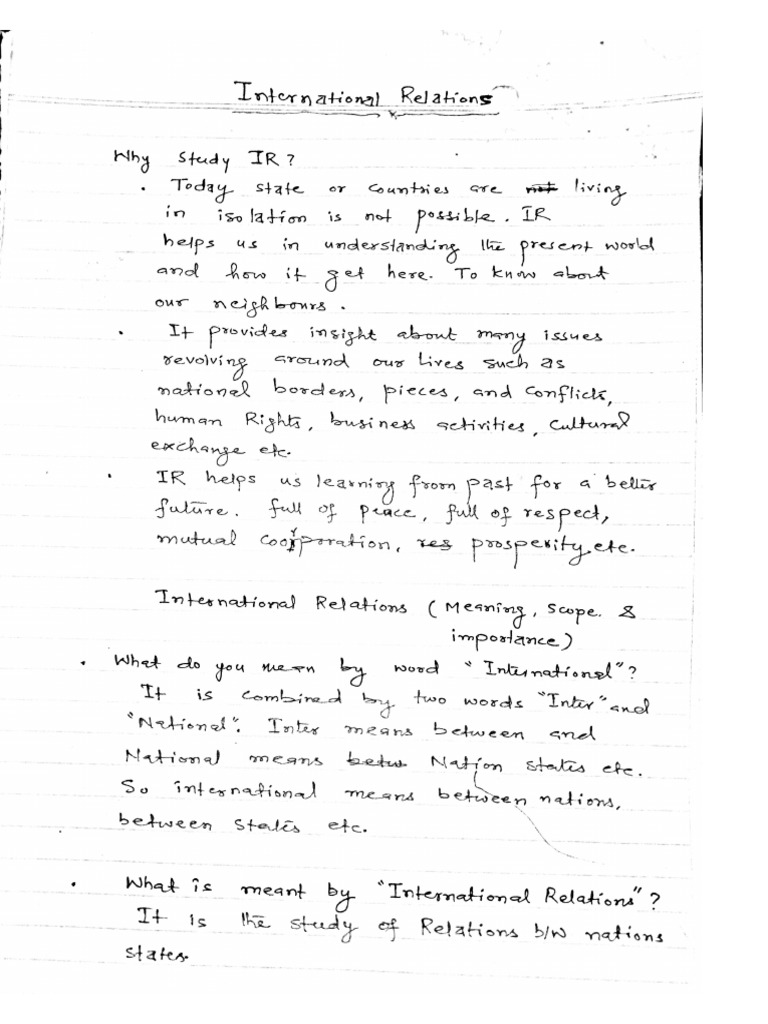 International Relations
Why study IR?
. Today state or countries are not living
in isolation is not possible. IR
helps us in understanding the present world
and how it get here. To know about
our neighbours.
. It provides insight about many issues
revolving around our lives such as
national borders, pieces, and conflicts,
human Rights, business activities, cultural
exchange etc.
. IR helps us learning from past for a better
future. full of peace, full of respect,
mutual coorporation, res prosperity, etc.
International Relations (Meaning, Scope. &
importance)
. What do you mean by word "International"?
It is combined by two words "Inter" and
"National". Inter means between and
National means betw Nation states etc.
So international means between nations,
between States etc.
. What is meant by "International Relations"?
It is the study of Relations b/w nations
states.